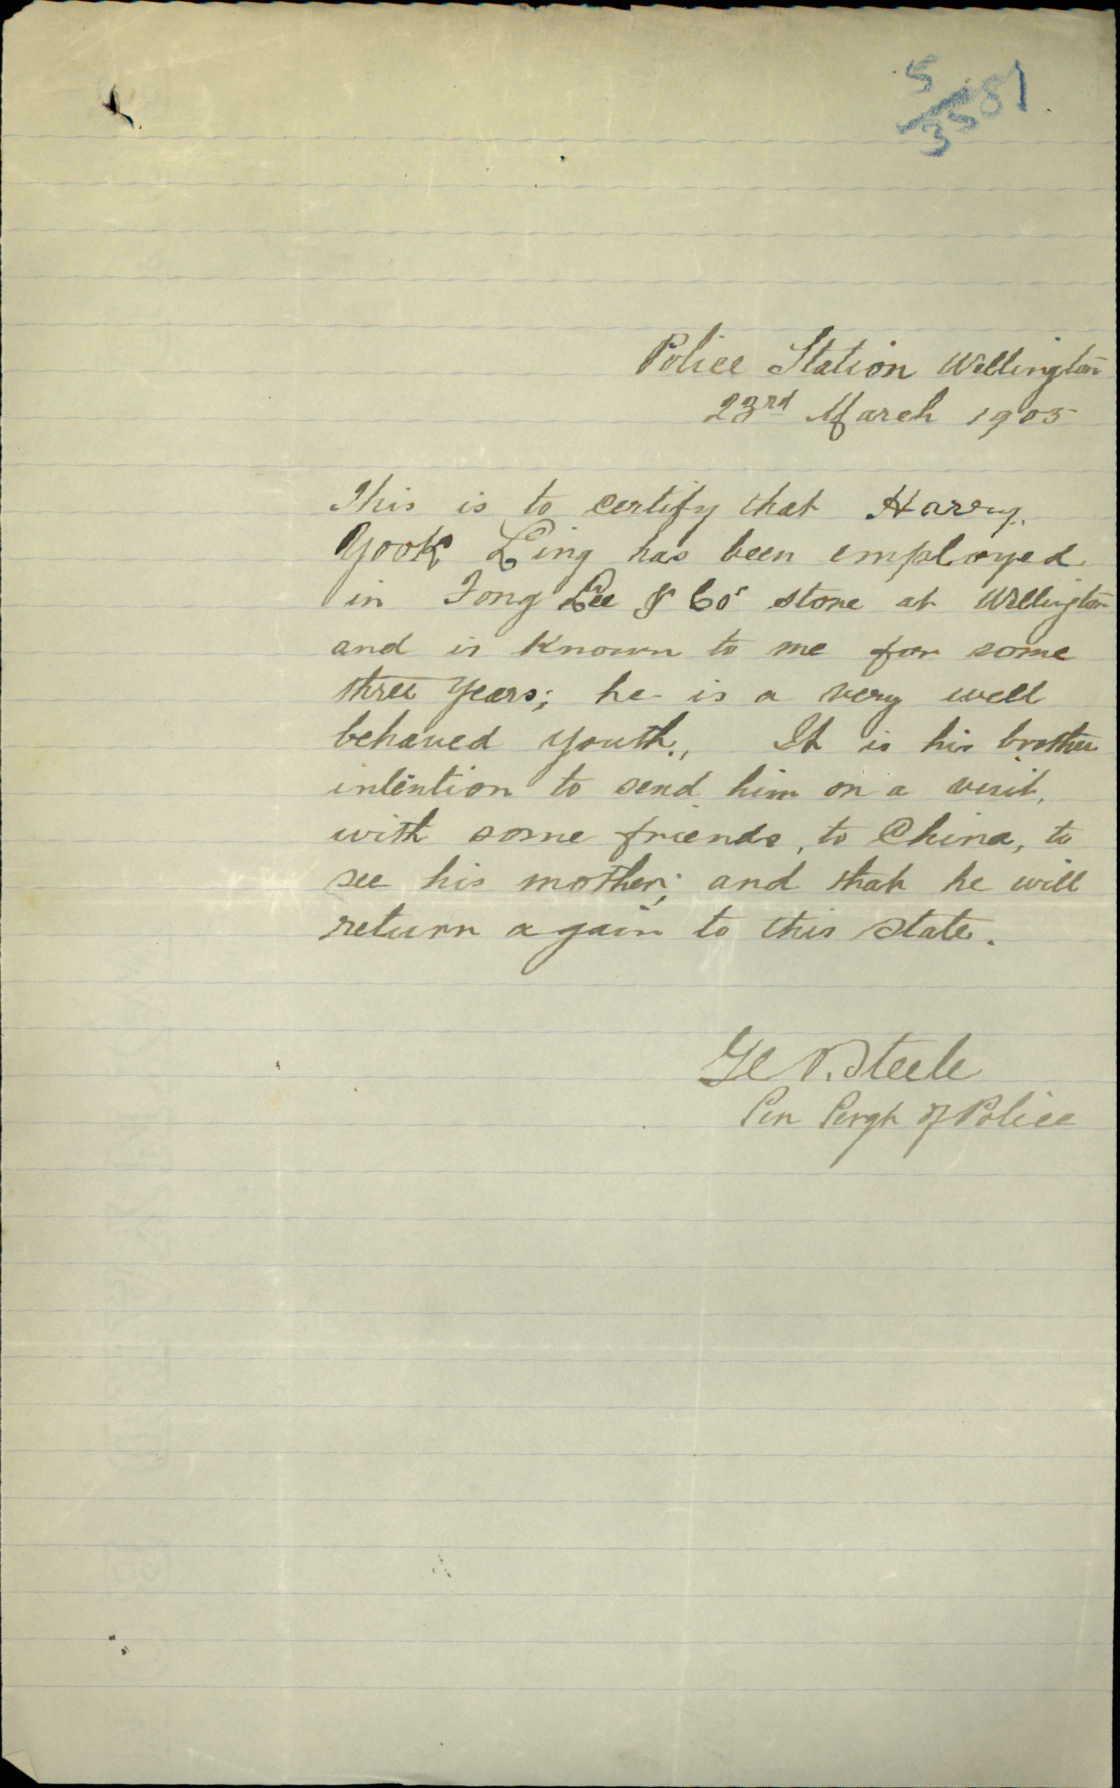 5/3587
Police Station Wellington
23rd March 1905
This is to certify that Harry.
Yook Ling has been employed
in Fong Lee & Co's store at Wellington
and is known to me for some
three years; he is a very well
behaved youth., It is his brother
intention to send him on a visit,
with some friends, to China, to
see his mother; and that he will
return again to this State.
Steele
Sen Sergt of Police